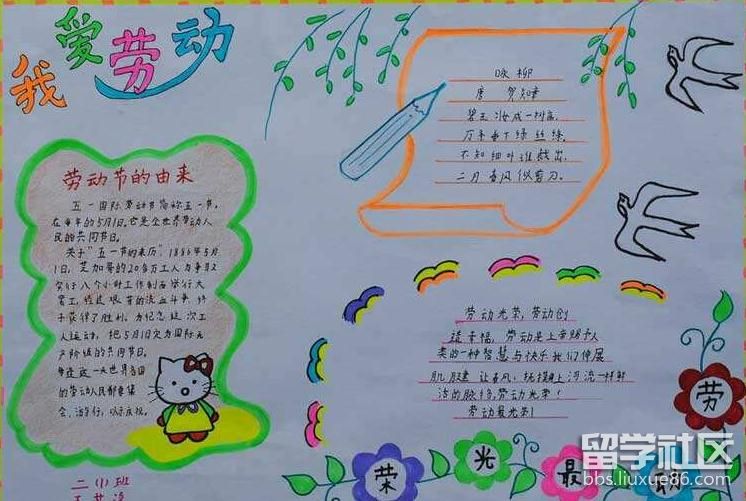 我爱劳动
劳动节的由来
五一国际劳动节简称五一节,
在每年的5月1日。它是全世界劳动人
民的共同节日。
关于"五一节的来历",1886年5月
1日,芝加哥的20多万工人为争取
实行八个小时工作制而举行大
罢工,经过艰苦的流血斗争,终
于获得了胜利。为纪念这次工
人运动,把5月1日定为国际无
产阶级的共同节日。
每逢这一天世界各国
的劳动人民都要集
会、游行,以示庆祝。
二(1)班
咏柳
唐 贺知章
碧玉妆成一树高,
万条垂下绿丝绦。
不知细叶谁裁出,
二月春风似剪刀。
劳动光荣,劳动创
造幸福,劳动是上帝赐予人
类的一种智慧与快乐我们伸展
肌腱 让春风,抚摸着上河流一样鲜
活的脉络,劳动光荣!
劳动最光荣!
劳
动
最
光
荣
留学社区
bbs.liuxue86.com